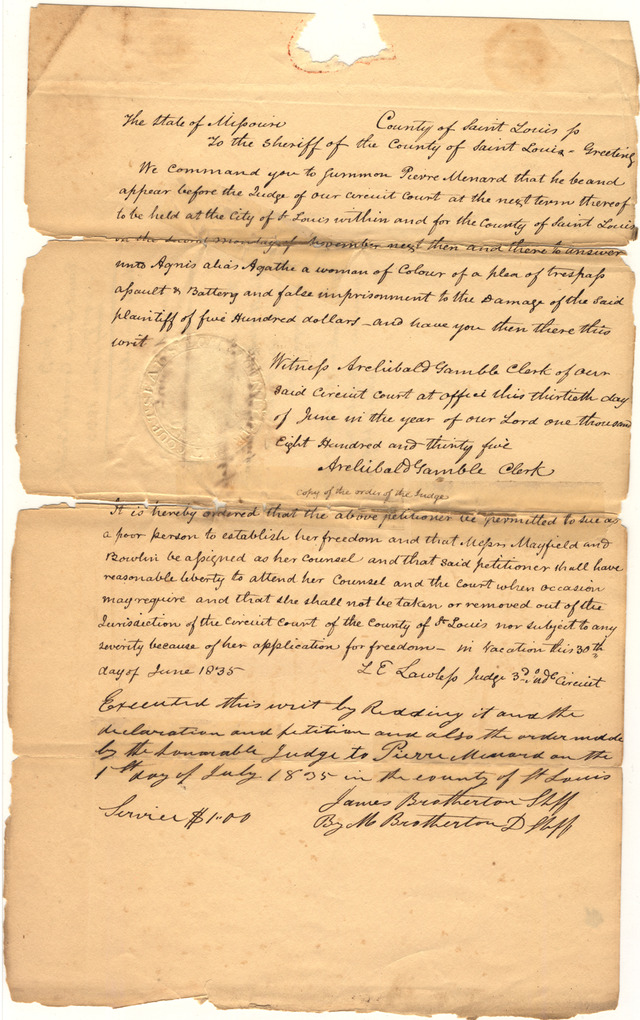 The State of Missouri County of Saint Louis ss
To the Sheriff of the County of Saint Louis - Greeting
We command you to Summon Pierre Menard that he be and
appear before the Judge of our circuit court at the next term thereof
to be held at the City of St Louis within and for the County of Saint Louis
on the second monday of November next then and there to answer
unto Agnis alias Agathe a woman of Colour of a plea of trespass
assault & Battery and false imprisonment to the Damage of the said
plaintiff of five Hundred dollars - and have you then there this
writ
Witness Archibald Gamble Clerk of our
said Circuit court at office this thirtieth day
of June in the year of our Lord one thousand
Eight Hundred and thirty five
Archibald Gamble Clerk
Copy of the order of the Judge
It is hereby ordered that the above petitioner be permitted to sue as
a poor person to establish her freedom and that Messrs Mayfield and
Bowlin be assigned as her counsel and that said petitioner shall have
reasonable liberty to attend her Counsel and the Court when occasion
may require and that she shall not be taken or removed out of the
Jurisdiction of the Circuit Court of the County of St Louis nor subject to any
severity because of her application for freedom - in vacation this 30th
day of June 1835 L E Lawless Judge 3rd Jude Circuit
Executed this writ by Redding it and the
declaration and petition and also the order made
by the honorable Judge to Pierre Menard on the
1st day of July 1835 in the county of St Louis
Service $1.00 James Brotherton Shff
By M Brotherton D Shff